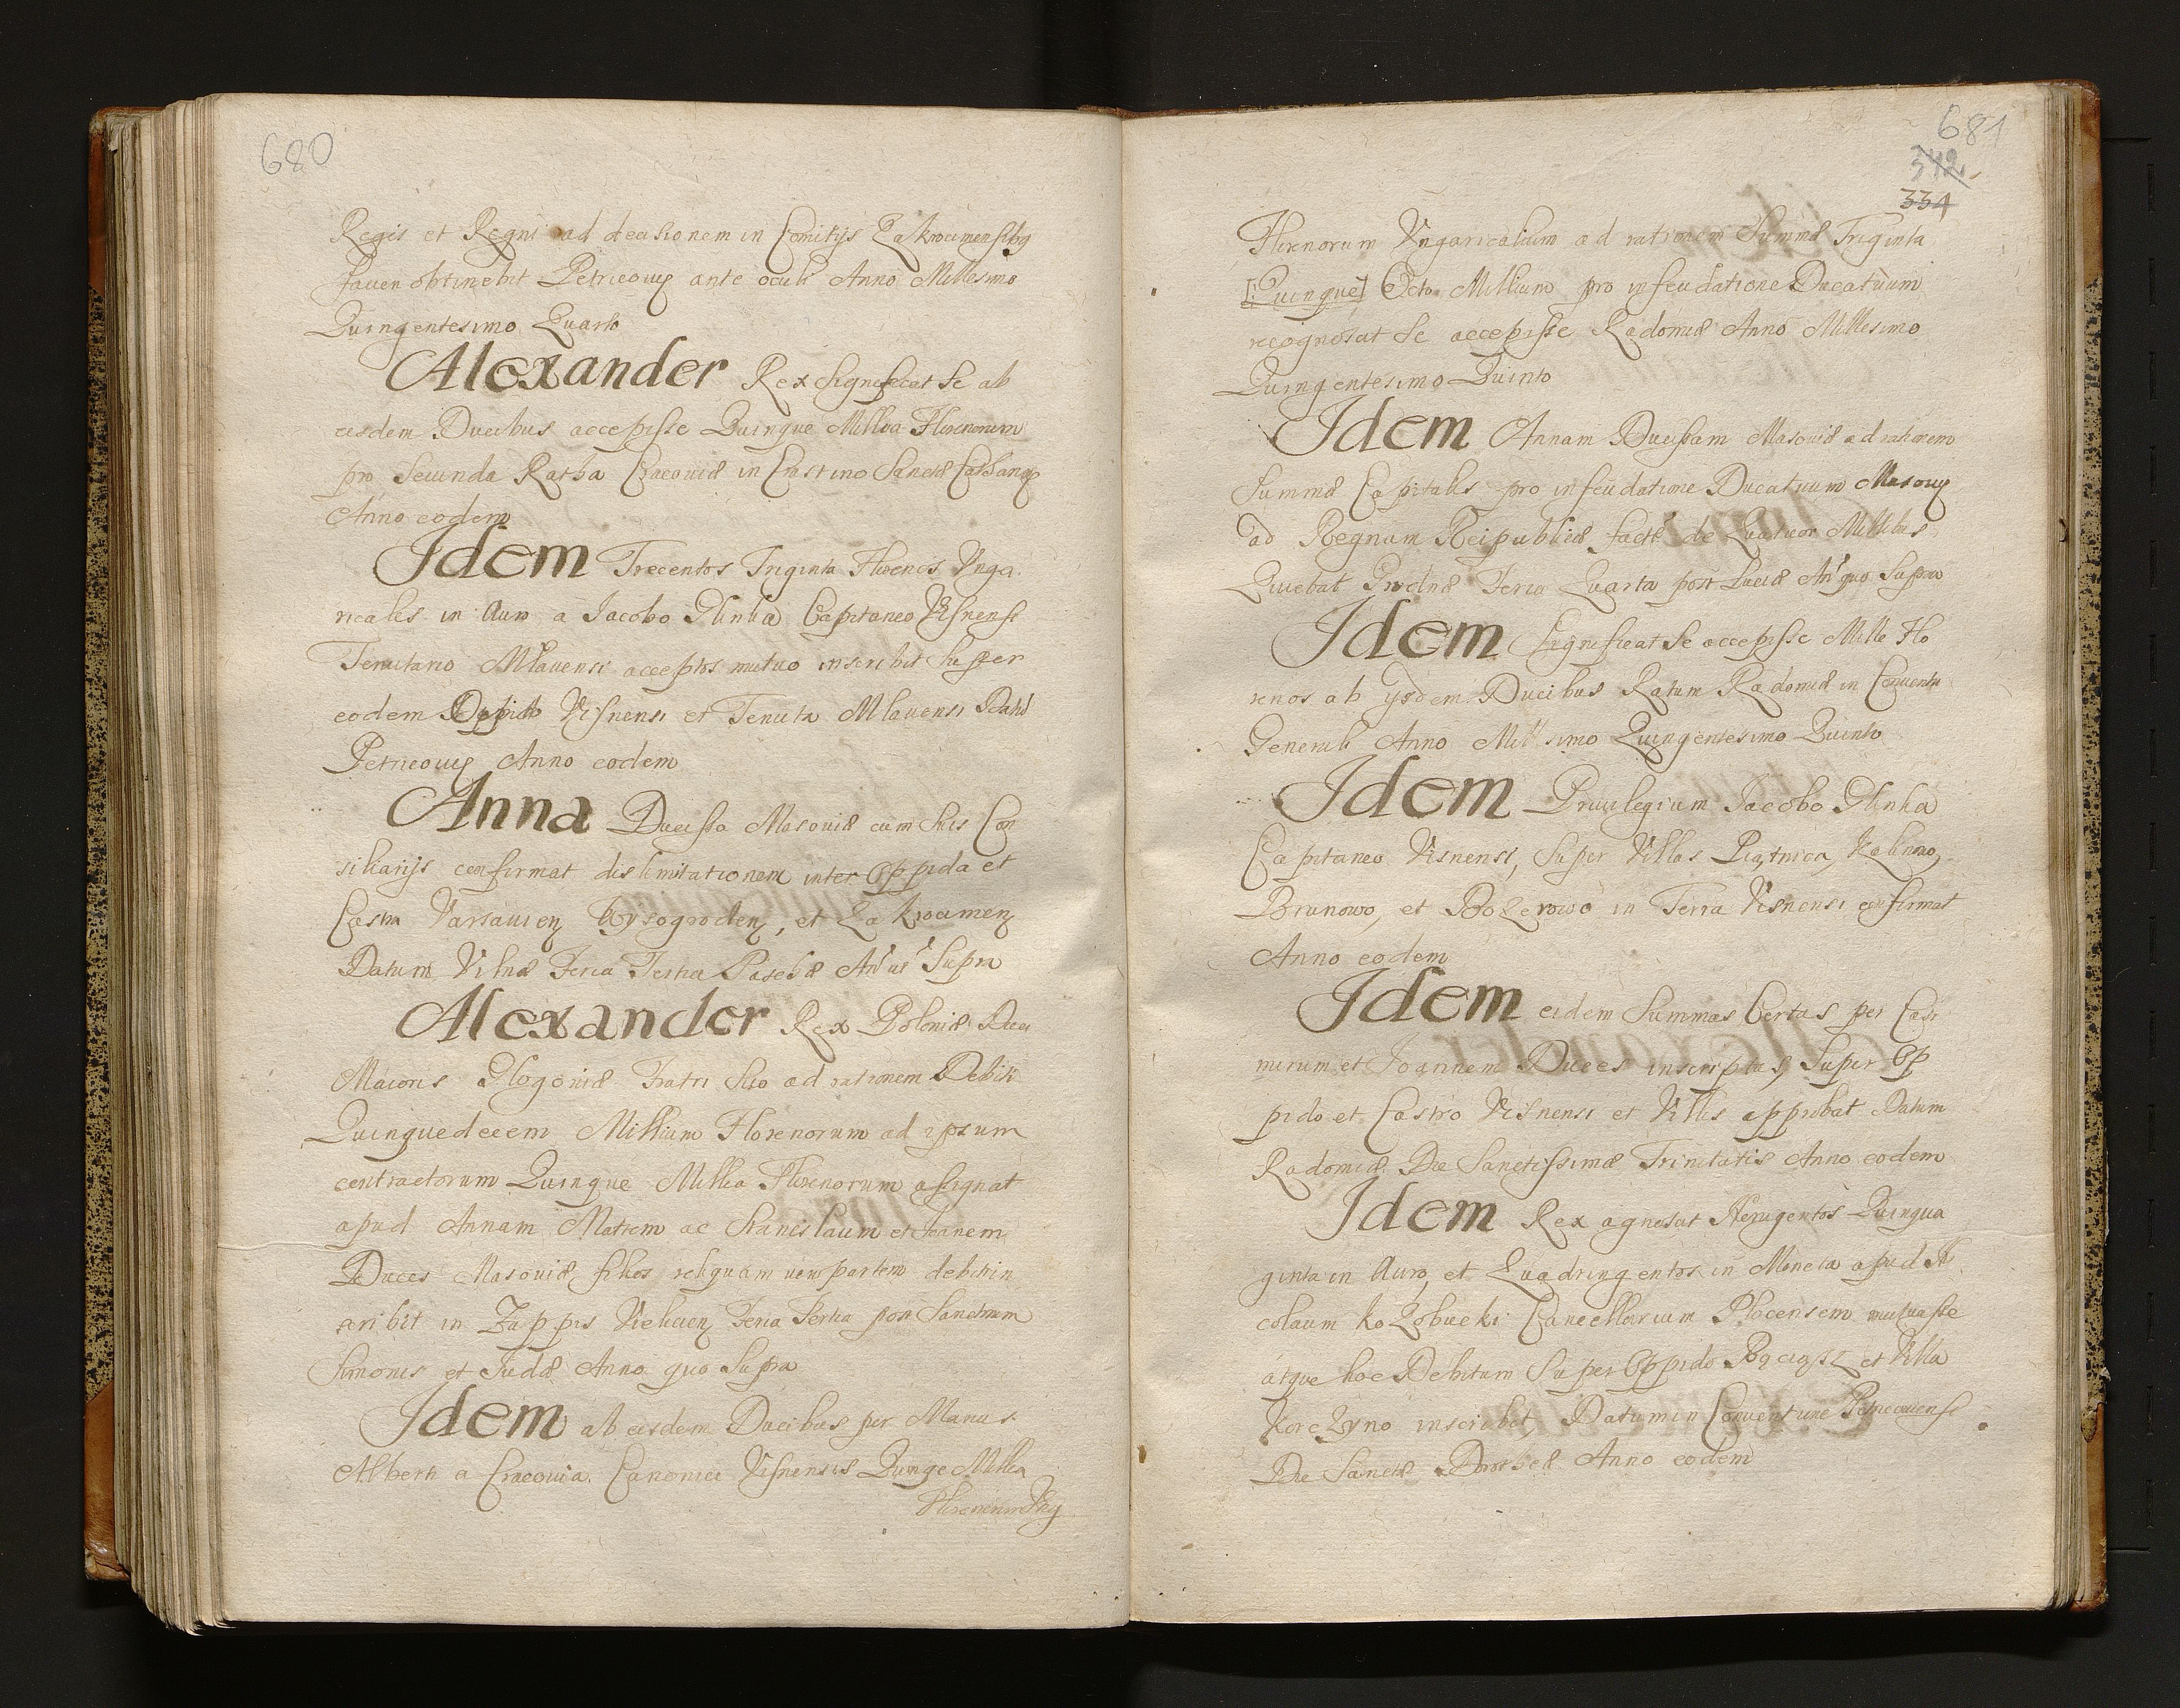 680
Regis et Regni ad decisionem in Comitijs Zakrocimensibg
fauen obtinebit Petricouię ante oculi Anno Millesimo
Quingentesimo Quarto
Alexander Rex Significat Se ab
eisdem Ducibus accepisse Quinque Millia Florenorum
pro Secunda Ratha Cracouiæ in Crastino Sanctæ
Anno eodem
Idem Trecentos Triginta Florenos Vnga
ricales in Auro a Jacobo Glinka Capitaneo Visnensi
Tenutario Mlauensi acceptos mutuo inscribit super
eodem Oppido Visnensi et Tenuta Mlauensi
Petricouię Anno eodem
Anna Ducissa Masouiæ cum Suis Con
siliarijs confirmat dislimitationem inter Oppida et
Castra Varsauien Wysogroden, et Zakrocimen
Datum Vilnæ Feria Tertia Paschæ An' ut Supra
Alexander Rex Poloniæ Duci
Maioris Glogouiæ Fratri Suo ad rationem Debiti
Quinquedecem Millium Florenorum ad ipsum
contractorum Quinque Millia Florenorum assignat
apud Annam Matrem ac Stanislaum et Joanem
Duces Masouiæ, filios reliquam vero partem debiti in
scribit in Zuppis Vielicien Feria Tertia post Sanctorum
Simonis et Judæ Anno quo Supra
Idem ab eisdem Ducibus per Manus
Alberti a Cracouia Canonici Visnensis Quinqe Millia
Florenorum Vng
681
342
334
Florenorum Vngaricalium ad rationem Summæ Triginta
[Quinque] Octo Millium pro infeudatione Ducatuum
recognoscit Se accepisse Radomiæ Anno Millesimo
Quingentesimo Quinto
Idem Annam Ducissam Masouiæ ad rationem
Summæ Capitalis pro infeudatione Ducatuum Masouię
ad Regnum Reipublicæ factæ de Quatuor Millibus
Quietat Grodnæ Feria Quarta post Luciæ An' quo Supra
Idem Significat Se accepisse Mille Flo
renos ab ysdem Ducibus Ratum Radomiæ in Conuentu
Generali Anno Millesimo Quingentesimo Quinto
Idem Priuilegium Jacobo Glinka
Capitaneo Visnensi, Super Villas Piątnica, Kalinowo,
Brunowo, et Bozerowo in Terra Visnensi confirmat
Anno eodem
Idem eidem Summas Certas per Casi
mirum et Joannem Duces inscriptas, Super Op
pido et Castro Visnensi et Villis approbat Datum
Radomiæ Die Sanctissimæ Trinitatis Anno eodem
Idem Rex agnoscit Quingua
ginta in Auro, et Quadringentos in Moneta apud Ni
colaum Kozobucki Cancellarium Plocensem mutuasse
atque hoc Debitum Super Oppido et Villa
Korczyno inscribit, Datum in Conuentune Petricouiensi
Die Sanctæ Dorotheæ Anno eodem